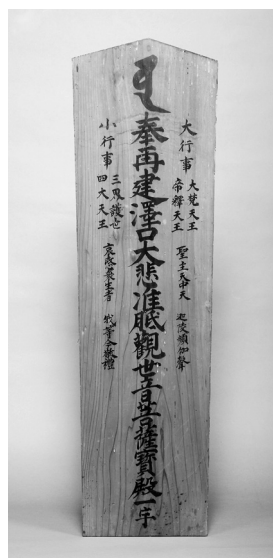 大行事
大梵天王
帝釋天王
聖主天中天 迦陵頻伽聲
奉再建澤口大悲准胝觀世音菩薩寶殿一宇
小行事
三界護世
四大天王
哀愍衆生者 我等今敬禮